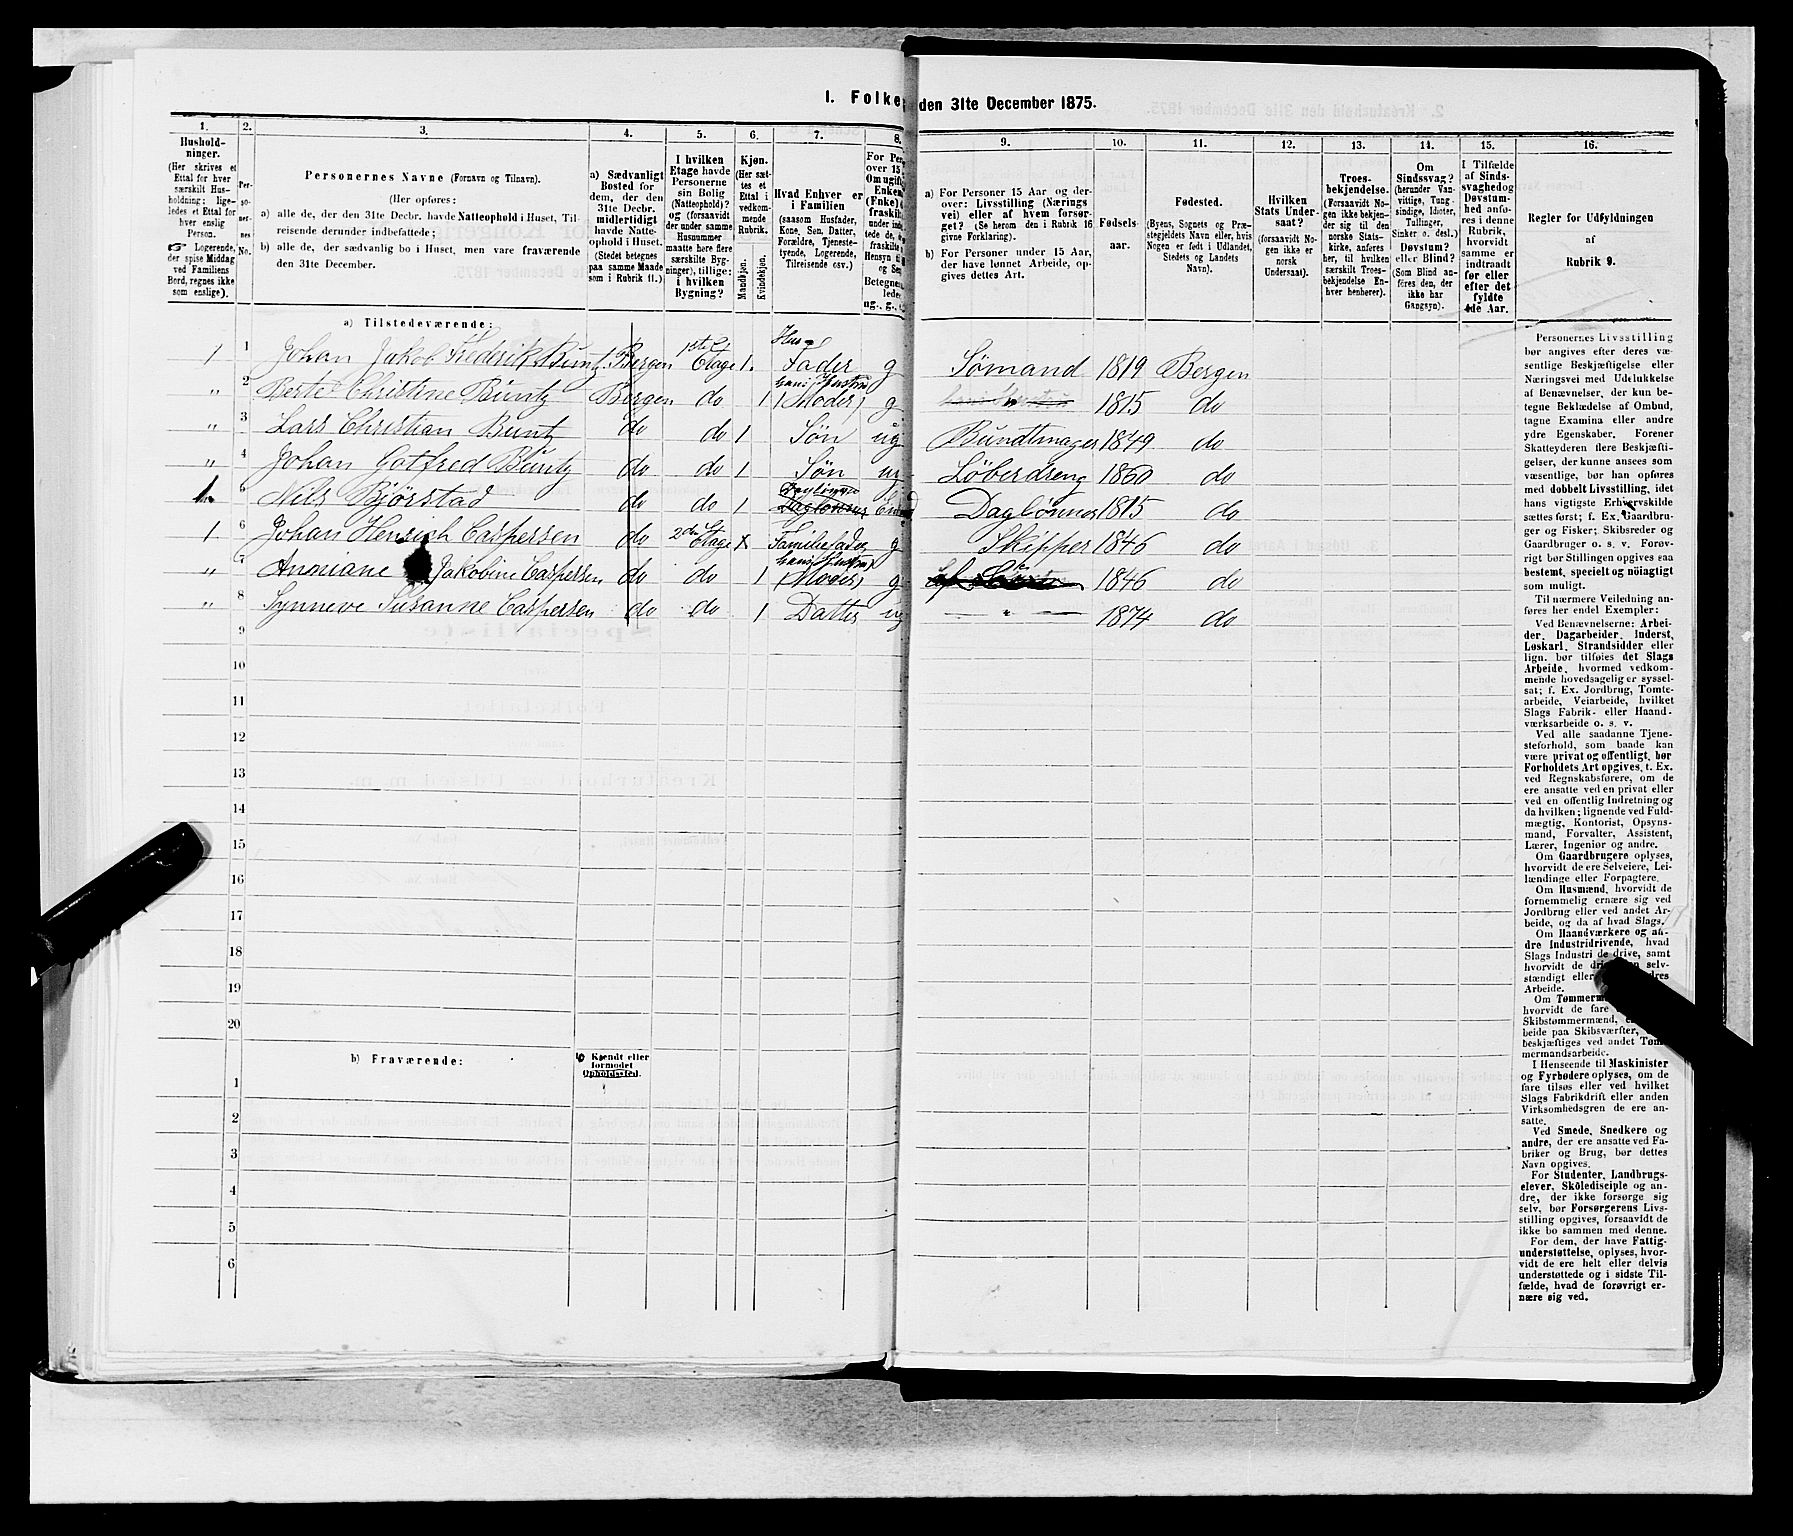 I. Folke den 31te December 1875.
1. 2. 3. 4. 5. 6. 7. 8. 9. 10. 11. 12. 13. 14. 15. 16.
Hushold-
ninger.
(Her skrives et
Ettal for hver
særskilt Hus-
holdning; lige-
ledes et Ettal for
hver enslig
Person.
Logerende,
der spise Middag
ved Familiens
Bord, regnes ikke
som enslige).
Per-
so-
ner-
nes
No.
Personernes Navne (Fornavn og Tilnavn).
(Her opføres:
a) alle de, der den 31te Decbr. havde Natteophold i Huset, Til-
reisende derunder indbefattede;
b) alle de, der sædvanlig bo i Huset, men vare fraværende
den 31te December.
a) Sædvanligt
Bosted for
dem, der den
31te Decbr.
midlertidigt
havde Natte-
ophold i Huset.
(Stedet betegnes
paa samme Maade
som i Rubrik 11.)
I hvilken
Etage havde
Personerne
sin Bolig
(Natteophold)?
og (forsaavidt
der under samme
Husnummer
maatte være flere
særskilte Byg-
ninger), tillige:
i hvilken
Bygning?
Kjøn.
(Her sæt-
tes et
Ettal i
vedkom-
mende
Rubrik.
Mandkjøn.
Kvindekjøn.
Hvad Enhver er
i Familien
(saasom Husfader,
Kone, Søn, Datter,
Forældre, Tjeneste-
tyende, Logerende,
Tilreisende osv.)
For Pe
over 15
Om ugift
Enken
(Fke)
fraskilt
a) For Personer 15 Aar og der-
over: Livsstilling (Nærings
vei) eller af hvem forsør-
get? (Se herom den i Rubrik 16
givne Forklaring).
b) For Personer under 15 Aar,
der have lønnet Arbeide, op-
gives dettes Art.
Fødsels-
aar.
Fødested.
(Byens, Sognets og Præ-
stegjeldets Navn eller, hvis
Nogen er født i Udlandet,
Stedets og Landets
Navn).
Hvilken
Stats Under-
saat?
(forsaavidt No-
gen ikke er
norsk
Undersaat).
Troes-
bekjendelse.
(Forsaavidt No-
gen ikke bekjen-
der sig til den
norske Stats-
kirke, anføres
her, til hvilken
særskilt Troes-
bekjendelse En-
hver henhører).
Om
Sindssvag?
(herunder Van-
vittige, Tung-
sindige, Idioter,
Tullinger,
Sinker o. desl.)
Døvstum?
eller Blind?
(Som Blind an-
føres den, der
ikke har
Gangsyn).
I Tilfælde
af Sinds-
svaghed og
Døvstum-
hed anfø-
res i denne
Rubrik,
hvorvidt
samme er
indtraadt
før eller
efter det
fyldte
4de Aar.
Regler for Udfyldningen
af
Rubrik 9.
a) Tilstedeværende:
1 1 Johan Jakob Frederik Buntz Bergen 1ste Etage 1. Hus- Fader g Sømand 1819 Bergen
" 2 Berte Christine Buntz Bergen do 1 hans Hustru (Moder) g 1815 do
" 3 Lars Christian Buntz do do 1 Søn ug Bundtmager 1849 do
" 4 Johan Gotfred Buntz do do 1 Søn ug Løberdreng 1860 do
1. 5 Nils Bjørstad do do 1 Daglønner 1815 do
1 6 Johan Henrich Caspersen do 2de Etage Familiefader g Skipper 1846 do
" 7 Anniane Jakobine Caspersen do do 1 hans Hustru (Moder) g 1846 do
" 8 Synneve Susanne Caspersen do do 1 Datter ug — " — 1874 do
9
10
11
12
13
14
15
16
17
18
19
20
b) Fraværende: b) Kjendt eller
formodet
Opholdssted.
1
2
3
4
5
6
Personernes Livsstilling
bør angives efter deres væ-
sentlige Beskjæftigelse eller
Næringsvei med Udelukkelse
af Benævnelser, der kun be-
tegne Beklædelse af Ombud,
tagne Examina eller andre
ydre Egenskaber. Forener
Skatteyderen flere Beskjæfti-
gelser, der kunne ansees som
væsentlige, bør han opføres
med dobbelt Livsstilling, idet
hans vigtigste Erhvervskilde
sættes først; f. Ex. Gaardbru-
ger og Fisker; Skibsreder og
Gaardbruger o. s. v. Forøv-
rigt bør Stillingen opgives saa
bestemt, specielt og nøiagtigt
som muligt.
Til nærmere Veiledning an-
føres her endel Exempler:
Ved Benævnelserne: Arbei-
der, Dagarbeider, Inderst,
Løskarl, Strandsidder eller
lign. bør tilføies det Slags
Arbeide, hvormed vedkom-
mende hovedsagelig er syssel-
sat; f. Ex. Jordbrug, Tomte-
arbeide, Veiarbeide, hvilket
Slags Fabrik- eller Haand-
værksarbeide o. s. v.
Ved alle saadanne Tjene-
steforhold, som baade kan
være privat og offentligt, bør
Forholdets Art opgives, t. Ex.
ved Regnskabsførere, om de
ere ansatte ved en privat eller
ved en offentlig Indretning og
da hvilken; lignende ved Fuld-
mægtig, Kontorist, Opsyns-
mand, Forvalter, Assistent,
Lærer, Ingeniør og andre.
Om Gaardbrugere oplyses,
hvorvidt de ere Selveiere, Lei-
lændinge eller Forpagtere.
Om Husmænd, hvorvidt de
fornemmelig ernære sig ved
Jordbrug eller ved andet Ar-
beide, og da af hvad Slags.
Om Haandværkere og an-
dre Industridrivende, hvad
Slags Industri de drive, samt
hvorvidt de selv-
stændigt eller
Arbeide.
Om
hvorvidt de fare
Skibstømmermænd,
beide paa Skibsværfter,
beskjæftiges ved andet Tøm-
mermandsarbeide.
I Henseende til Maskinister
og Fyrbødere oplyses, om de
fare tilsøs eller ved hvilket
Slags Fabrikdrift eller anden
Virksomhedsgren de ere an-
satte.
Ved Smede, Snedkere og
andre, der ere ansatte ved Fa-
briker og Brug, bør dettes
Navn opgives.
For Studenter, Landbrugs-
elever, Skoledisciple og an-
dre, der ikke forsørge sig
selv, bør Forsørgerens Livs-
stilling opgives, forsaavidt de
ikke bo sammen med denne.
For dem, der have Fattig-
understøttelse, oplyses, hvor-
vidt de ere helt eller delvis
understøttede og i sidste Til-
fælde, hvad de forøvrigt er-
nære sig ved.